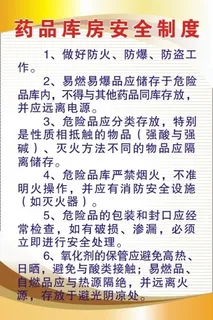 药品库房安全制度
1、做好防火、防爆、防盗工
作。
2、易燃易爆品应储存于危险
品库内，不得与其他药品同库存放，
并应远离电源。
3、危险品应分类存放，特别
是性质相抵触的物品（强酸与强
碱）、灭火方法不同的物品应隔
离储存。
4、危险品库严禁烟火，不准
明火操作，并应有消防安全设施
（如灭火器）。
5、危险品的包装和封口应经
常检查，如有破损、渗漏，必须
立即进行安全处理。
6、氧化剂的保管应避免高热、
日晒，应避免与酸类接触；易燃品、
自燃品应与热源隔绝，并远离火
源，存放于避光阴凉处。